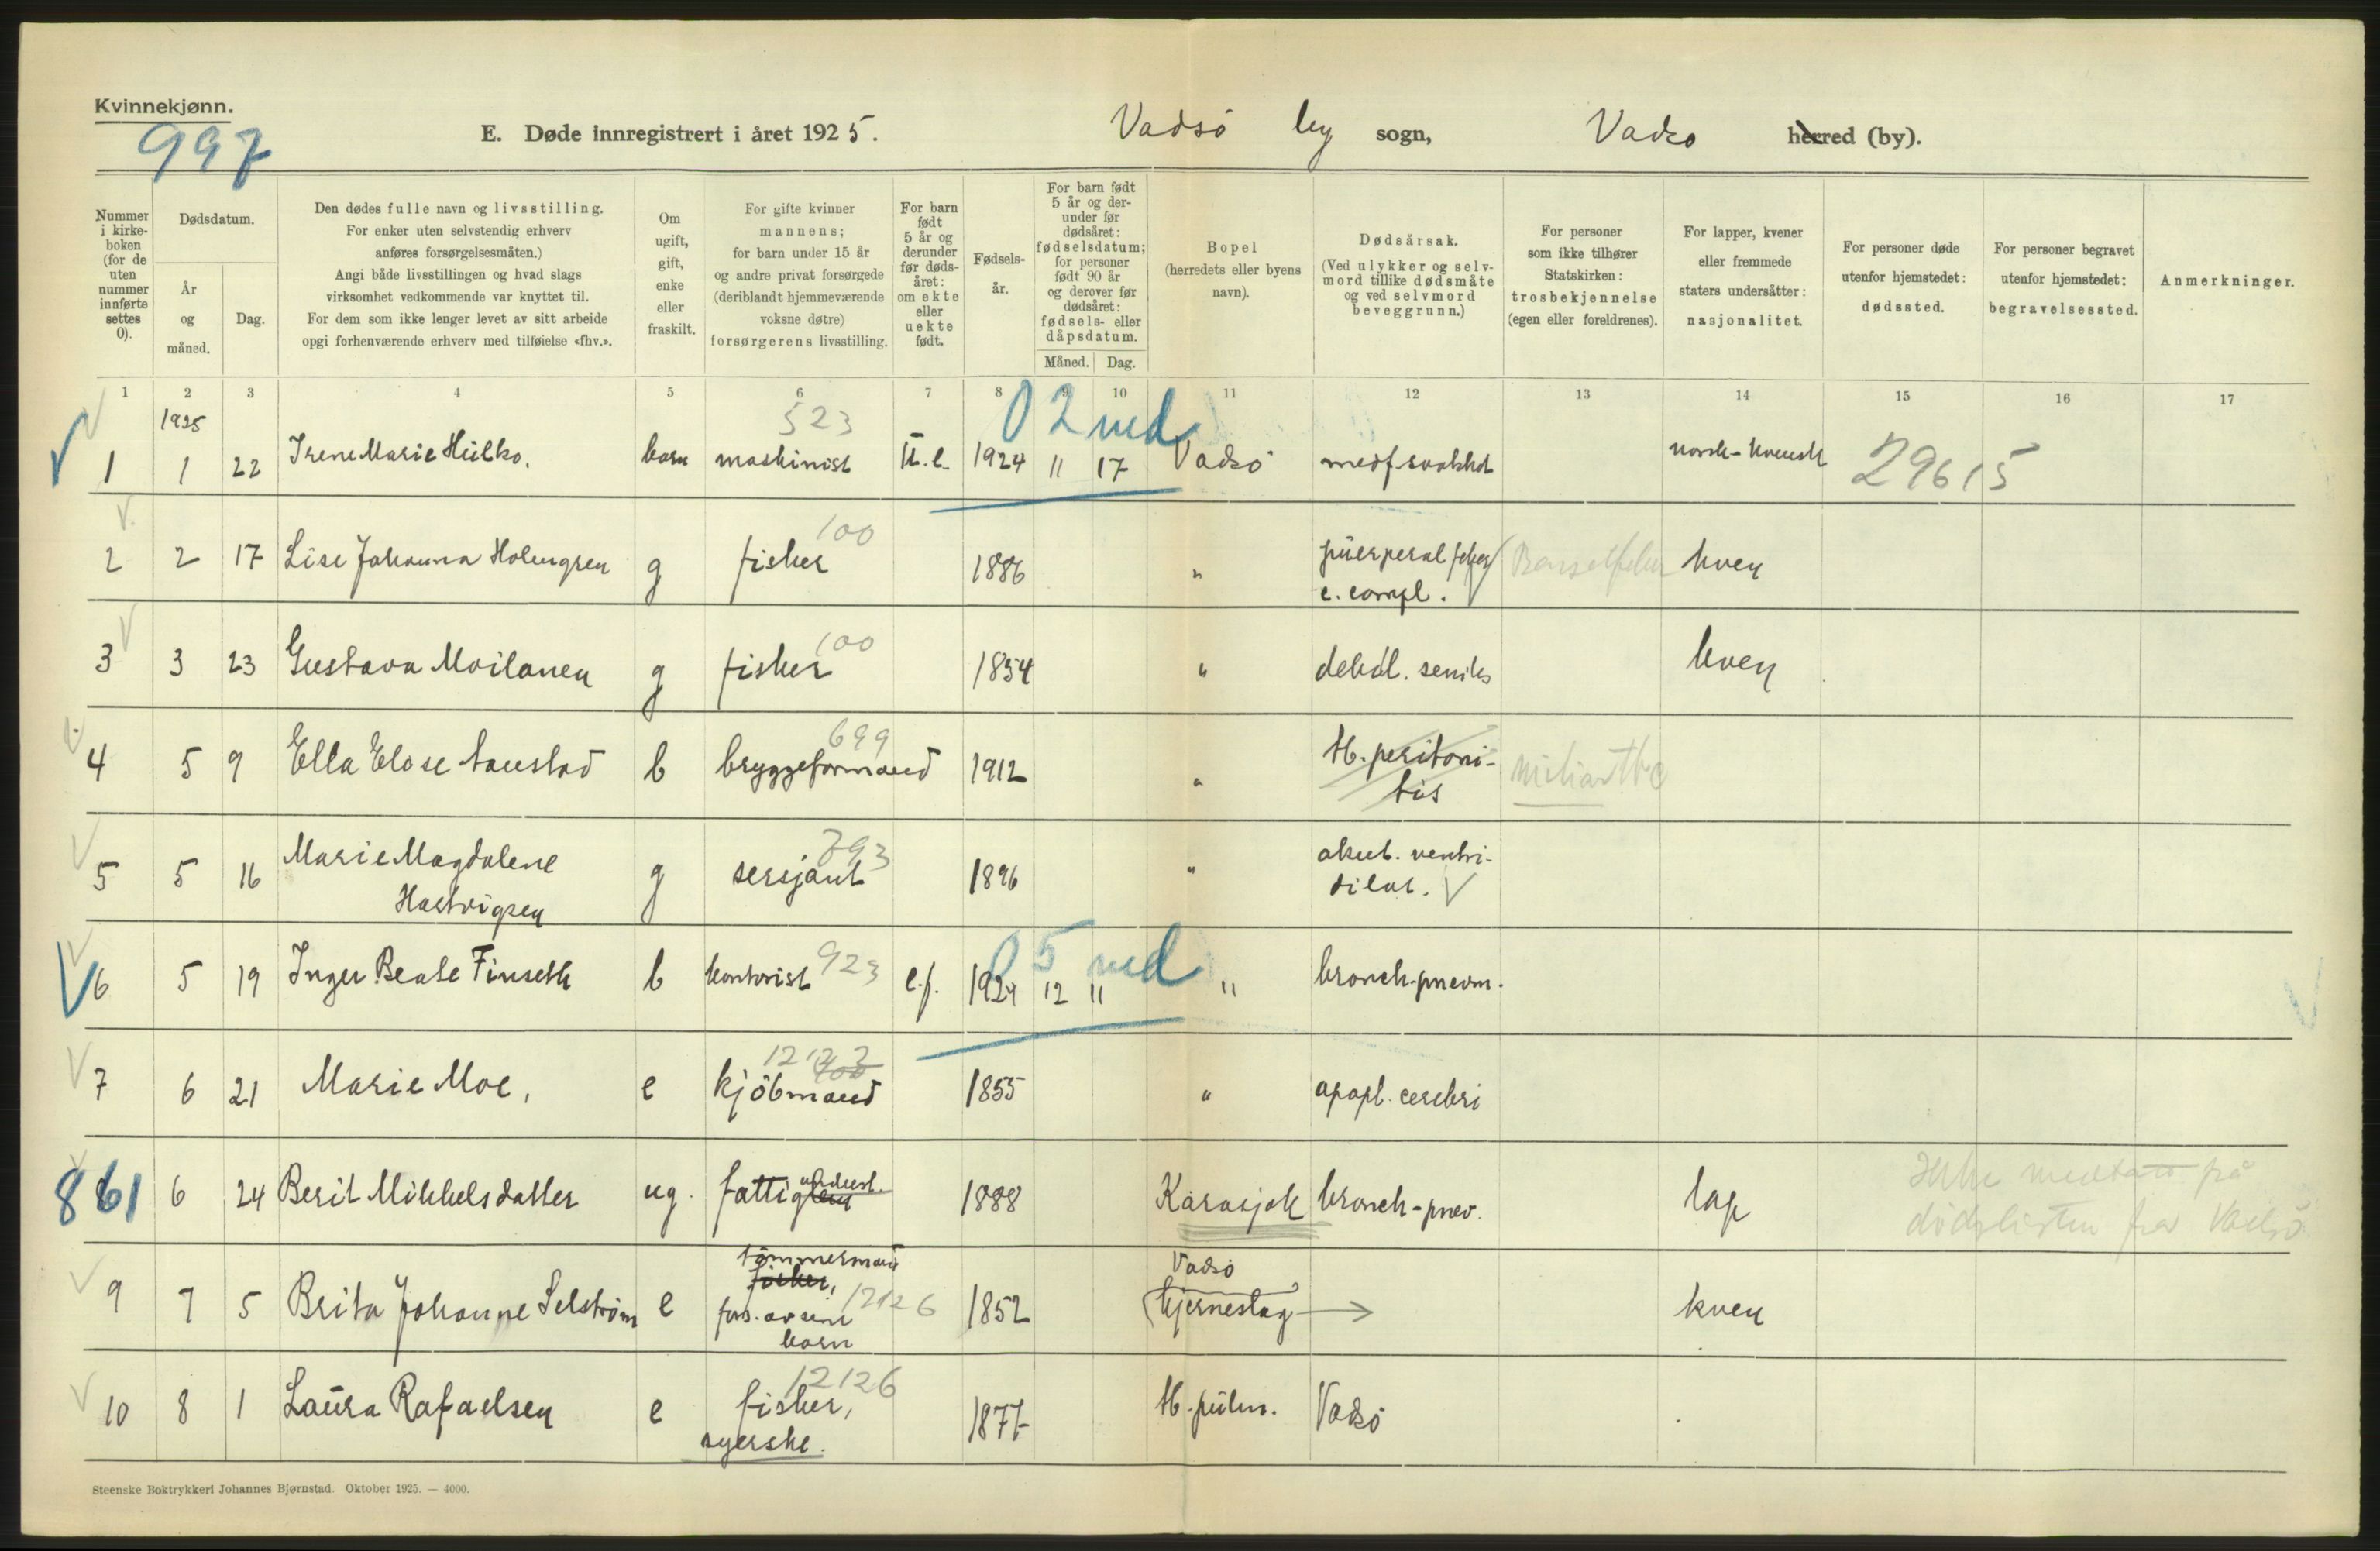 Kvinnekjønn.
997
E. Døde innregistrert i året 1925. Vadsö by sogn, Vadsö herred (by).
Nummer i kirke-boken (for de uten nummer innførte settes 0).
Dødsdatum.
År og måned.
Dag.
Den dødes fulle navn og livsstilling.
For enker uten selvstendig erhverv
anføres forsørgelsesmåten.)
Angi både livsstillingen og hvad slags
virksomhet vedkommende var knyttet til.
For dem som ikke lenger levet av sitt arbeide
opgi forhenværende erhverv med tilføielse «fhv.».
Om ugift, gift, enke eller fraskilt.
For gifte kvinner
mannens;
for barn under 15 år
og andre privat forsørgede
(deriblandt hjemmeværende
voksne døtre)
forsørgerens livsstilling.
For barn født 5 år og derunder før døds-året: om ekte eller uekte født.
Fødsels-år.
For barn født
5 år og der-
under før
dødsåret:
fødselsdatum;
for personer
født 90 år
og derover før
dødsåret:
fødsels- eller
dåpsdatum.
Måned. Dag.
Bopel
(herredets eller byens
navn).
Dødsårsak.
(Ved ulykker og selv-
mord tillike dødsmåte
og ved selvmord
beveggrunn.)
For personer
som ikke tilhører
Statskirken:
trosbekjennelse
(egen eller foreldrenes).
For lapper, kvener
eller fremmede
staters undersåtter:
nasjonalitet.
For personer døde
utenfor hjemstedet:
dødssted.
For personer begravet
utenfor hjemstedet:
begravelsessted.
Anmerkninger.
1 2 3 4 5 6 7 8 9 10 11 12 13 14 15 16 17
1925 523 0 2 md
1 1 22 Irene Marie Huilko. barn maskinist 1924 11 17 Vadsö medf. svakhet norsk-kvensk 29615
100
2 2 17 Lise Johanna Holmgren g fisker 1886 " puerperal feber Barselfeber kven
c. compl.
100
3 3 23 Gustava Moilanen g fisker 1854 " debil. senilis kven
699
4 5 9 Ella Elose b bryggeformand 1912 " tb. peritoni-
tis
miliar tbc
793
5 5 16 Marie Magdalene g sersjant 1896 " akut. ventri-
Hartvigsen dilat.
923 0 5 md
6 5 19 Inger Beate Finseth b kontorist e.f. 1924 12 11 " bronch-pneum.
7 6 21 Marie Moe, e kjöbmand 1855 " apopl. cerebri
861 6 24 Berit Mikkelsdatter ug. fattig 1888 Karasjok bronch-pnev. lap
Ikke medtatt på
dødslisten fra Vadsö
9 7 5 Brita Johanne Selström e tömmermand
fisker,
fors. av sine 12126
barn
1852 Vadsö
hjerneslag → kven
12126
10 8 1 Laura Rafaelsen e fisker,
syerske.
1877 tb. pulm. Vadsö
Steenske Boktrykkeri Johannes Bjørnstad. Oktober 1925. — 4000.